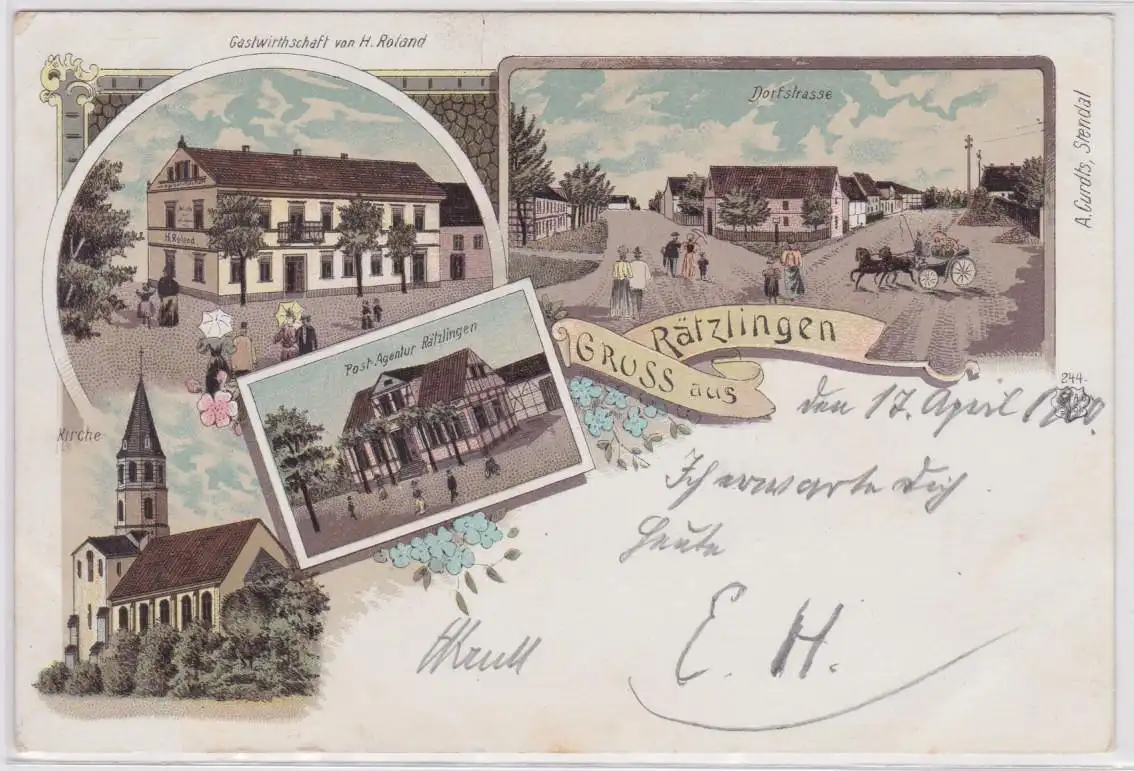 Gastwirthschaft von H. Roland
Dorfstrasse
A. Gurdts, Stendal
H. Roland.
Post-Agentur Rätzlingen
GRUSS aus
Rätzlingen
Kirche
244.
den 17. April
Ich erwarte Dich
heute
E. H.